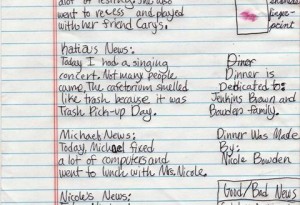 alot of testing. She also
went to recess and played
with her friend Carys.
finger-
point
Katia's News:
Today I had a singing
concert. Not many people
came. The cafetorium smelled
like trash because it was
Trash Pick-up Day.
Diner
Dinner is
Dedicated to:
Jenkins Brown and
Bowden-family.
Michael's News:
Today, Michael fixed
a lot of computers and
went to lunch with Mrs. Nicole.
Dinner Was Made
By:
Nicole Bowden
Nicole's News:
Good/Bad News